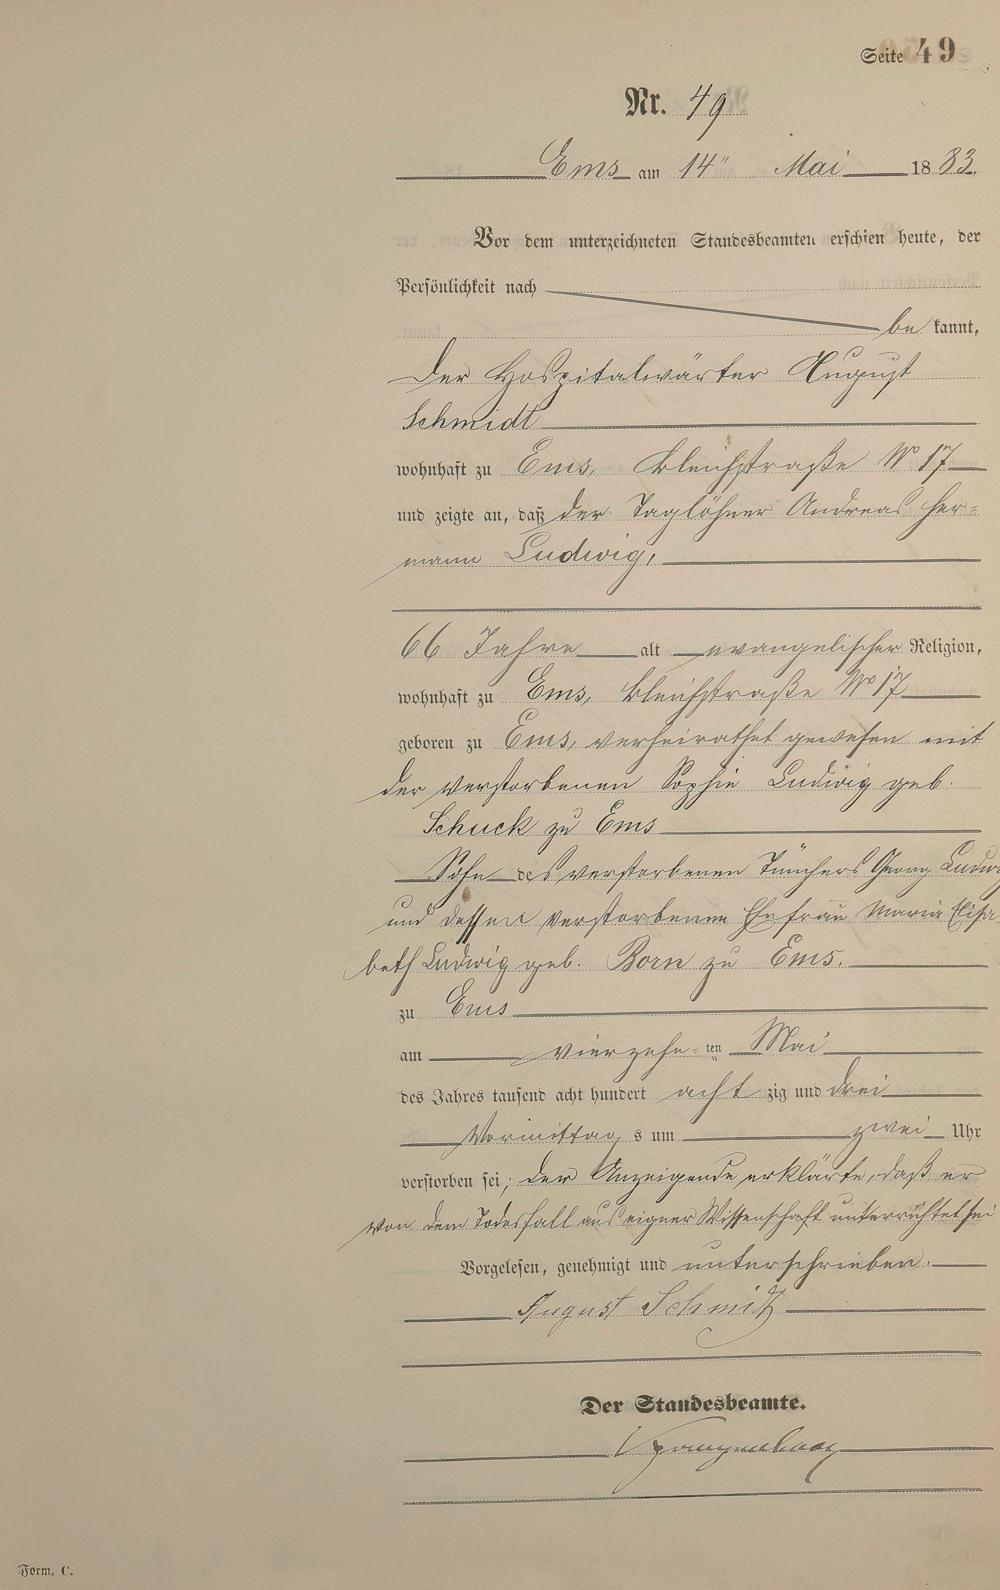 Seite 49
Nr. 49
Ems am 14" Mai 1883.
Vor dem unterzeichneten Standesbeamten erschien heute, der
Persönlichkeit nach
be kannt,
der Hospitalwärter August
Schmidt
wohnhaft zu Ems, Bleichstraße No 17
und zeigte an, daß der Taglöhner Andreas Her=
mann Ludwig,
66 Jahre alt evangelischer Religion,
wohnhaft zu Ems, Bleichstraße No 17
geboren zu Ems, verheirathet gewesen mit
der verstorbenen Sophie Ludwig geb.
Schuck zu Ems
Sohn des verstorbenen Tünchers Georg Ludwig
und dessen verstorbenen Ehefrau Maria Elisa
beth Ludwig geb. Born zu Ems.
zu Ems
am vierzehn= ten Mai
des Jahres tausend acht hundert acht zig und drei
Vormittag s um zwei Uhr
verstorben sei; der Anzeigende erklärte, daß er
von dem Todesfall aus eigner Wissenschaft unterrichtet sei
Vorgelesen, genehmigt und unterschrieben.
August Schmitz
Der Standesbeamte.
Form. C.